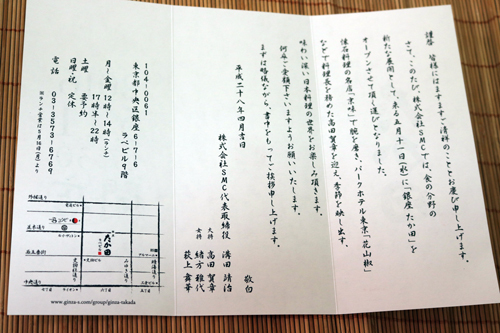 謹啓 皆様にはますますご清祥のこととお慶び申し上げます。
さて、このたび、株式会社SMCでは、食の分野の
新たな展開として、来る五月十一日(水)に「銀座 たか田」を
オープンさせて頂く運びとなりました。
懐石料理の名店「京味」で腕を磨き、パークホテル東京「花山椒」
などで料理長を務めた高田賀章を迎え、季節を映し出す、
味わい深い日本料理の世界をお楽しみ頂きます。
何卒ご愛顧下さいますようお願いいたします。
まずは略儀ながら、書中をもってご挨拶申し上げます。
敬白
平成二十八年四月吉日
株式会社SMC代表取締役 溝田靖治
大将 高田賀章
女将 緒方雅代
萩上舞華
104-0061
東京都中央区銀座6-7-6
ラペビル9階
月〜金曜 12時〜14時(ランチ)
17時半〜22時
土曜 要予約
日曜・祝 定休
電話 03-3573-6769
※ランチ営業は5月16日(月)より
外堀通り
並木通り
西五番街通り
中央通り
たか田
ラペビル9F
交詢社通り
みゆき通り
www.ginza-s.com/group/ginza-takada